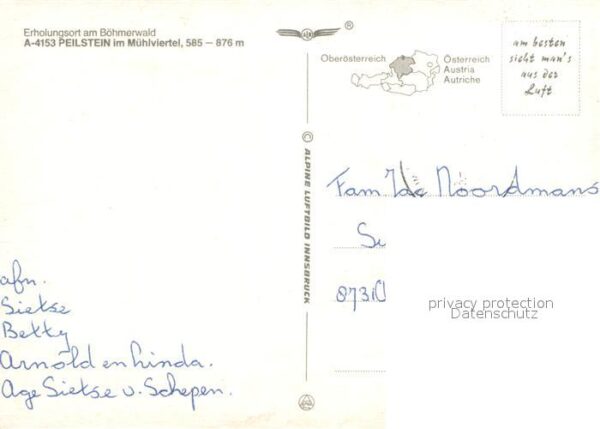 Erholungsort am Böhmerwald
A-4153 PEILSTEIN im Mühlviertel, 585 – 876 m
®
Oberösterreich
Österreich
Austria
Autriche
am besten
sieht man's
aus der
Luft
© ALPINE LUFTBILD INNSBRUCK
Fam Ide Noordmans
Se
8731
privacy protection
Datenschutz
afn.
Sietse
Betty
Arnold en linda.
Age Sietse v. Schepen.